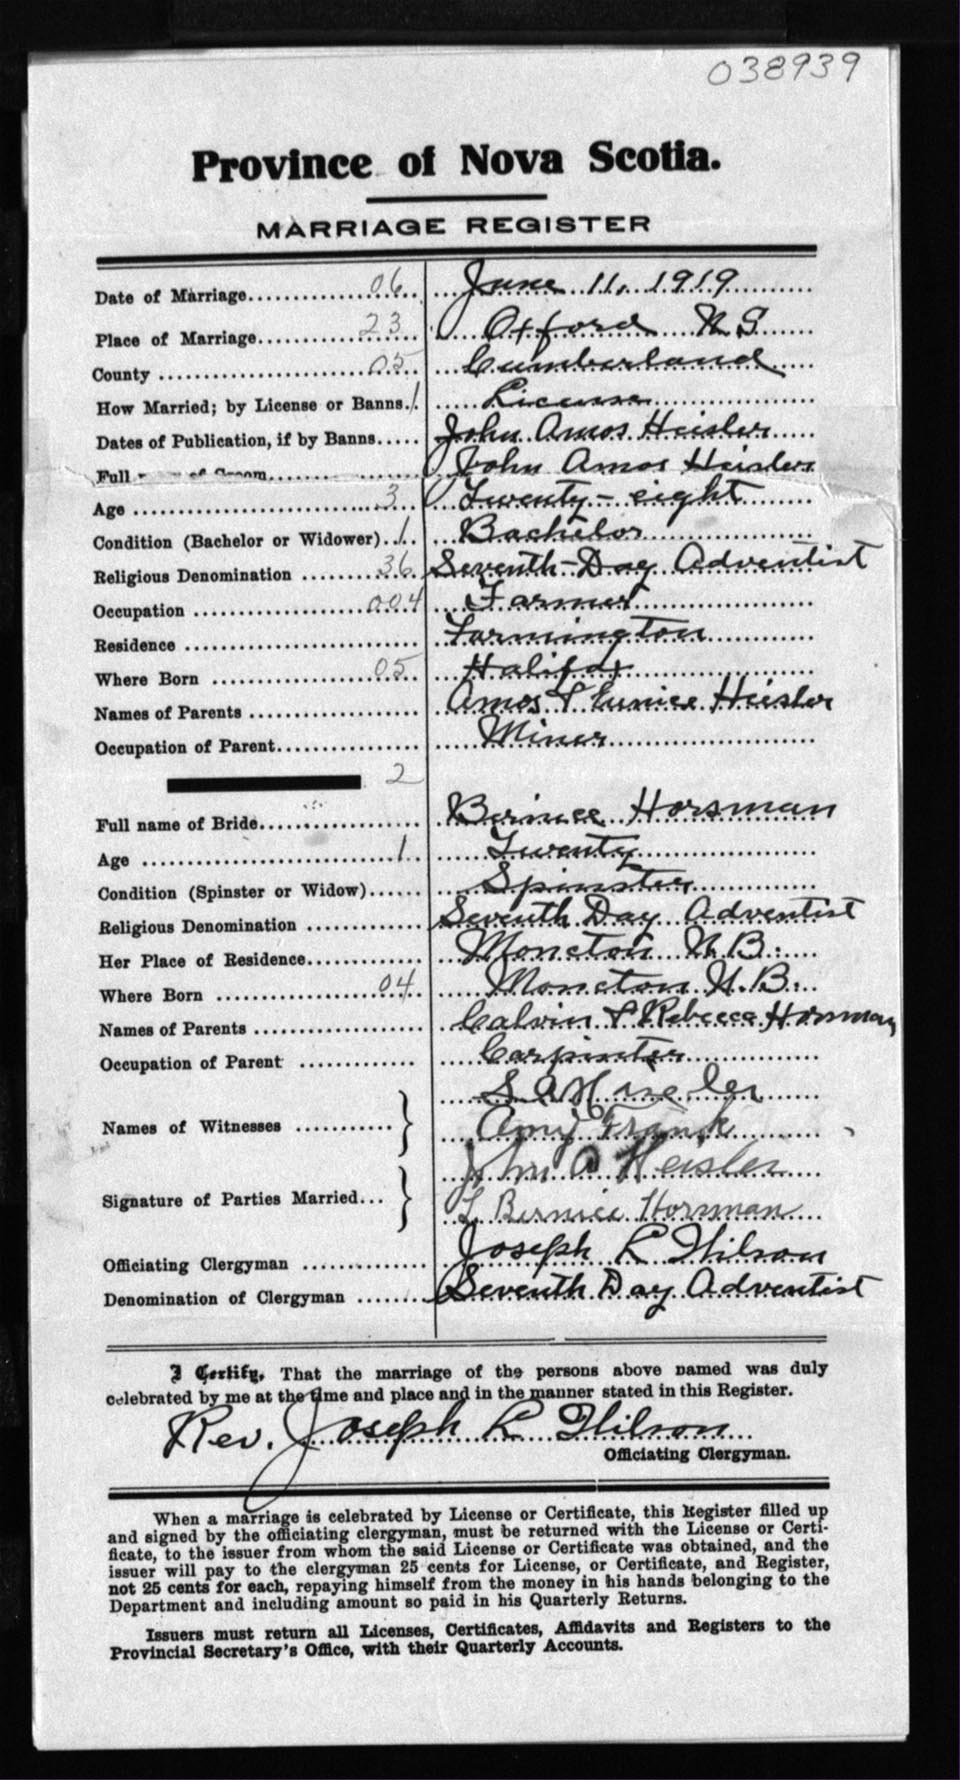 038939
Province of Nova Scotia.
MARRIAGE REGISTER
Date of Marriage 06 June 11, 1919
Place of Marriage 23 Oxford N.S
County 05 Cumberland
How Married; by License or Banns. 1 License
Dates of Publication, if by Banns John Amos Heisler
Full of Groom John Amos Heisler
Age 3 Twenty-eight
Condition (Bachelor or Widower) 1 Bachelor
Religious Denomination 36 Seventh-Day Adventist
Occupation 004 Farmer
Residence Farmington
Where Born 05 Halifax
Names of Parents Amos & Eunice Heisler
Occupation of Parent Miner
2
Full name of Bride Bernice Horsman
Age 1 Twenty
Condition (Spinster or Widow) Spinster
Religious Denomination Seventh Day Adventist
Her Place of Residence Moncton N.B.
Where Born 04 Moncton N.B.
Names of Parents Calvin & Rebecca Horsman
Occupation of Parent Carpenter
Names of Witnesses
Amy Frank
Signature of Parties Married... John A Heisler
L Bernice Horsman
Officiating Clergyman Joseph L Wilson
Denomination of Clergyman Seventh Day Adventist
I Certify, That the marriage of the persons above named was duly
celebrated by me at the time and place and in the manner stated in this Register.
Rev. Joseph L Wilson
Officiating Clergyman.
When a marriage is celebrated by License or Certificate, this Register filled up
and signed by the officiating clergyman, must be returned with the License or Certi-
ficate, to the issuer from whom the said License or Certificate was obtained, and the
issuer will pay to the clergyman 25 cents for License, or Certificate, and Register,
not 25 cents for each, repaying himself from the money in his hands belonging to the
Department and including amount so paid in his Quarterly Returns.
Issuers must return all Licenses, Certificates, Affidavits and Registers to the
Provincial Secretary's Office, with their Quarterly Accounts.